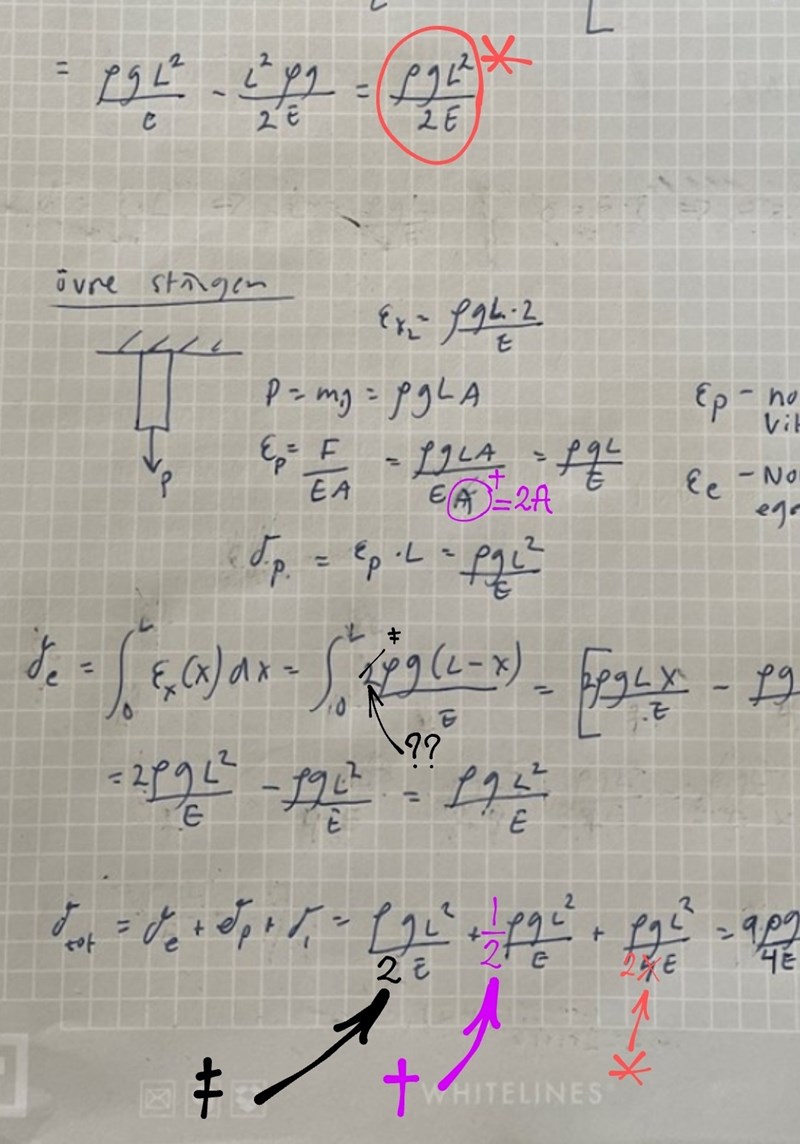 = ρgL²/e - L²ρg/2E = ρgL²/2E *
övre stången
εx₂ = ρgL·2/E
P = mg = ρgLA
εp = F/EA = ρgLA/EA = ρgL/E
† = 2A
P
δp. = εp · L = ρgL²/E
εp - no
Vik
εe - No
ege
‡
δe = ∫₀ᴸ εx(x)dx = ∫₀ᴸ 2ρg(L-x)/E = [2ρgLx/E - ρg
??
= 2ρgL²/E - ρgL²/E = ρgL²/E
δtot = δe + δp + δ₁ = ρgL²/2E + 1/2 ρgL²/E + ρgL²/2 4E = 9ρg/4E
‡ † *
WHITELINES